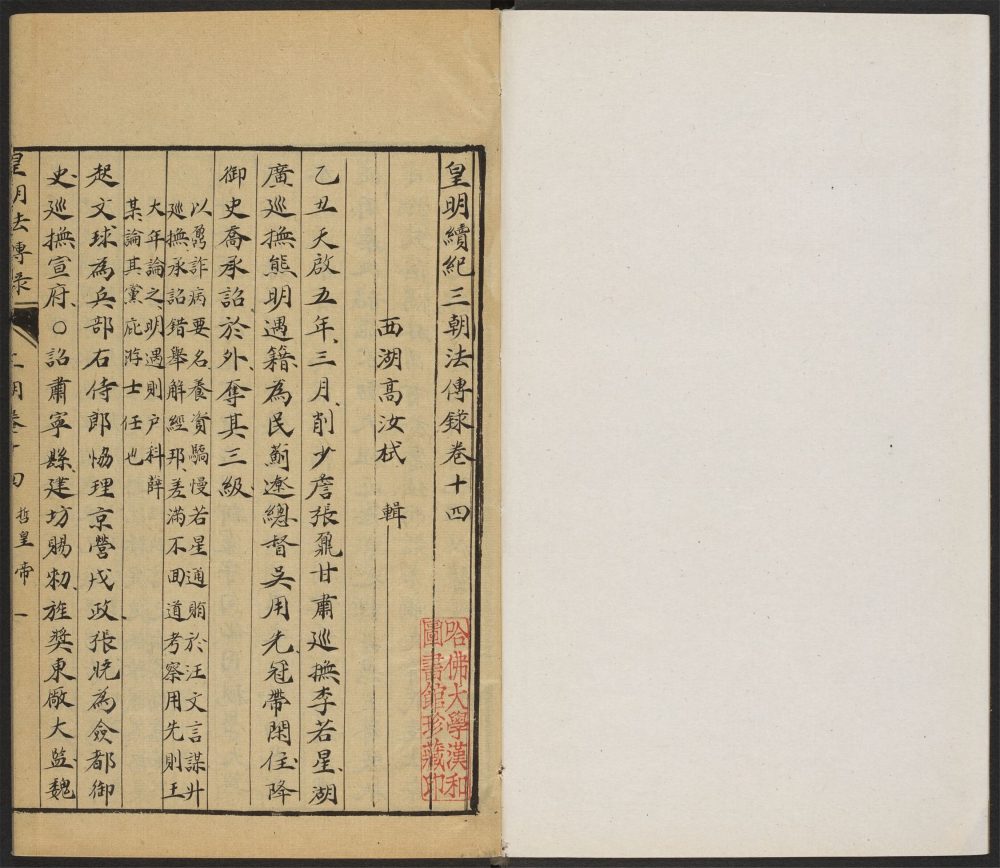 皇明續紀三朝法傳錄卷十四
西湖高汝栻 輯
乙丑天啟五年三月削少詹張鼐甘肅巡撫李若星湖
廣巡撫熊明遇籍為民薊遼總督吳用先冠帶閑住降
御史喬承詔於外奪其三級
以鼐詐病要名養資驕慢若星通賄於汪文言謀升
巡撫承詔錯舉解經邦差滿不回道考察用先則王
大年論之明遇則戶科薛
某論其黨庇游士任也
起文球為兵部右侍郎恊理京營戎政張晚為僉都御
史巡撫宣府○詔肅寧縣建坊賜勑旌獎東厰大監魏
皇明法傳录
三朝卷十四
哲皇帝
一
哈佛大學漢和
圖書館珍藏印